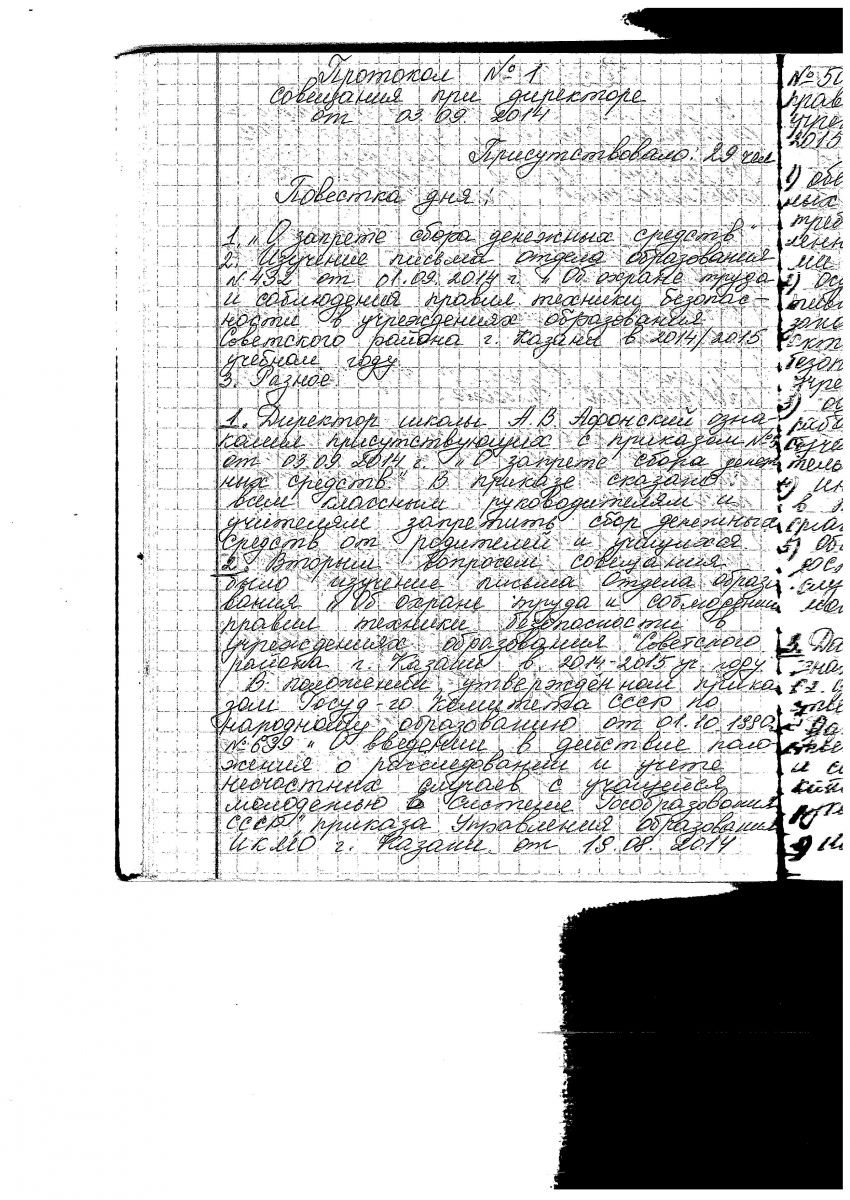 Протокол № 1
совещания при директоре
от 03.09. 2014
Присутствовало: 29 чел
Повестка дня:
1. „О запрете сбора денежных средств"
2. Изучение письма отдела образования
№432 от 01.09.2014 г. „Об охране труда
и соблюдения правил техники безопас-
ности в учреждениях образования
Советского района г. Казани в 2014/2015
учебном году
3. Разное
1. Директор школы А.В. Афонский озна-
комил присутствующих с приказом
от 03.09.2014 г. „О запрете сбора денеж
ных средств" В приказе сказано:
всем классным руководителям и
учителям запретить сбор денежных
средств от родителей и учащихся.
2. Вторым вопросом совещания
было изучение письма Отдела образо
вания „Об охране труда и соблюдении
правил техники безопасности в
учреждениях образования "Советского
района г. Казани в 2014-2015 уч. году
В положении, утвержденном прика
зом Госуд-го Комитета СССР по
народному образованию от 01.10.1990
№639 „О введении в действие поло
жения о расследовании и учете
несчастных случаев с учащейся
молодежью в системе Гособразования
СССР", приказа Управления образования
ИКМО г. Казани от 19.08. 2014
№
прав
учре
2015
1)
ных
треб
ми
2)
3)
4)
в
5)
3.
и